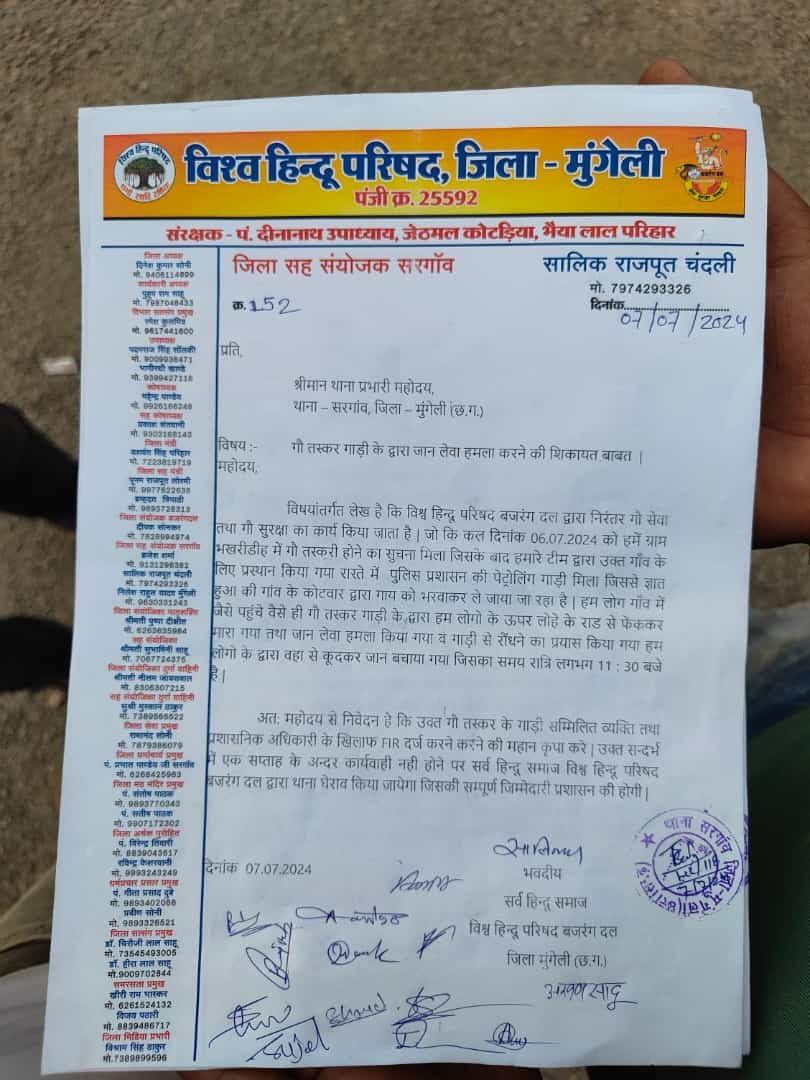 विश्व हिन्दू परिषद, जिला - मुंगेली
पंजी क्र. 25592
संरक्षक - पं. दीनानाथ उपाध्याय, जेठमल कोटड़िया, भैया लाल परिहार
जिला सह संयोजक सरगाँव
सालिक राजपूत चंदली
मो. 7974293326
क्र. 152
दिनांक 07/07/2024
जिला अध्यक्ष
दिनेश कुमार सोनी
मो. 9406114899
कार्यकारी अध्यक्ष
पुहुप राम साहू
मो. 7987048433
विभाग सतसंग प्रमुख
रमेश कुलमित्र
मो. 9617441600
उपाध्यक्ष
पदमराज सिंह सोलंकी
मो. 9009938471
भागीरथी खाण्डे
मो. 9399427116
कोषाध्यक्ष
महेन्द्र पाण्डेय
मो. 9926166246
सह कोषाध्यक्ष
प्रकाश संतवानी
मो. 9303168143
जिला मंत्री
यशवंत सिंह परिहार
मो. 7223819719
जिला सह मंत्री
पूनम राजपूत लोरमी
मो. 9977822635
इन्द्रदत्त त्रिपाठी
मो. 9893728313
जिला संयोजक बजरंगदल
दीपक सोनकर
मो. 7828994974
जिला सह संयोजक सरगाँव
ब्रजेश शर्मा
मो. 9131298382
सालिक राजपूत चंदली
मो. 7974293326
निलेश राहुल यादव मुंगेली
मो. 9630331243
जिला संयोजिका मातृशक्ति
श्रीमती पुष्पा दीक्षीत
मो. 6263635984
सह संयोजिका
श्रीमती सुभाषिनी साहू
मो. 7067724375
जिला संयोजिका दुर्गा वाहिनी
श्रीमती नीलम जायसवाल
मो. 8305307215
सह संयोजिका दुर्गा वाहिनी
सुश्री मुस्कान ठाकुर
मो. 7389566522
जिला सेवा प्रमुख
रामानंद सोनी
मो. 7879386079
जिला धर्माचार्य प्रमुख
पं. प्रभात पाण्डेय जी सरगाँव
मो. 6268425963
जिला मठ मंदिर प्रमुख
पं. संतोष पाठक
मो. 9893770343
पं. सतीष पाठक
मो. 9907172302
जिला अर्चक पुरोहित
पं. विरेन्द्र तिवारी
मो. 8839043617
रविन्द्र केशरवानी
मो. 9993243249
धर्मप्रचार प्रसार प्रमुख
पं. गीता प्रसाद दुबे
मो. 9893402068
प्रवीण सोनी
मो. 9893326521
जिला सत्संग प्रमुख
डॉ. घिरौजी लाल साहू
मो. 73545493005
डॉ. हीरा लाल साहू
मो.9009702844
समरसता प्रमुख
खीरी राम भास्कर
मो. 6261524132
विजय पठारी
मो. 8839486717
जिला मिडिया प्रभारी
विश्राम सिंह ठाकुर
मो.7389899596
प्रति,
श्रीमान थाना प्रभारी महोदय,
थाना – सरगांव, जिला – मुंगेली (छ.ग.)
विषय :- गौ तस्कर गाड़ी के द्वारा जान लेवा हमला करने की शिकायत बाबत |
महोदय,
विषयांतर्गत लेख है कि विश्व हिन्दू परिषद बजरंग दल द्वारा निरंतर गौ सेवा
तथा गौ सुरक्षा का कार्य किया जाता है | जो कि कल दिनांक 06.07.2024 को हमें ग्राम
भखरीडीह में गौ तस्करी होने का सुचना मिला जिसके बाद हमारे टीम द्वारा उक्त गाँव के
लिए प्रस्थान किया गया रास्ते में पुलिस प्रशासन की पेट्रोलिंग गाड़ी मिला जिससे ज्ञात
हुआ की गांव के कोटवार द्वारा गाय को भरवाकर ले जाया जा रहा है | हम लोग गाँव में
जैसे पहुंचे वैसे ही गौ तस्कर गाड़ी के द्वारा हम लोगो के ऊपर लोहे के राड से फेककर
मारा गया तथा जान लेवा हमला किया गया व गाड़ी से रौंधने का प्रयास किया गया हम
लोगो के द्वारा वहा से कूदकर जान बचाया गया जिसका समय रात्रि लगभग 11 : 30 बजे
है |
अतः महोदय से निवेदन है कि उक्त गौ तस्कर के गाड़ी सम्मिलित व्यक्ति तथा
प्रशासनिक अधिकारी के खिलाफ FIR दर्ज करने करने की महान कृपा करे | उक्त सन्दर्भ
में एक सप्ताह के अन्दर कार्यवाही नही होने पर सर्व हिन्दू समाज विश्व हिन्दू परिषद
बजरंग दल द्वारा थाना घेराव किया जायेगा जिसकी सम्पूर्ण जिम्मेदारी प्रशासन की होगी |
दिनांक 07.07.2024
भवदीय
सर्व हिन्दू समाज
विश्व हिन्दू परिषद बजरंग दल
जिला मुंगेली (छ.ग.)
थाना सरगाँव